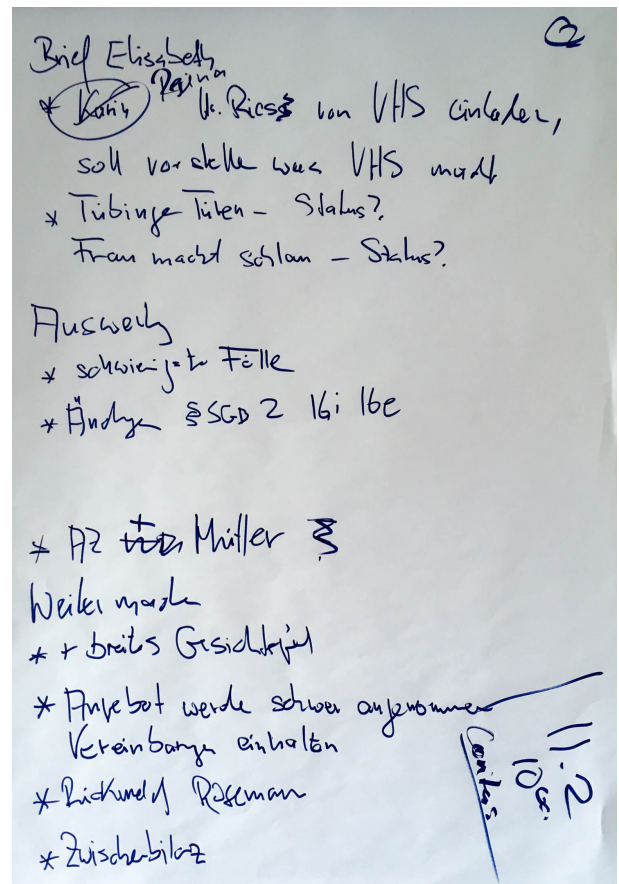 2
Brief Elisabeth
Regina
* Karin Hr. Riess von VHS einladen,
soll vorstelle was VHS macht
* Tübinge Türen – Status?
Frau macht schlau – Status?
* schwierigste Fälle
* Ändrgen § SGB 2 16i 16e
* AZ + Mütter
Weiter mache
* + breites
* Angebot werde schwer angenommen
Vereinbargen einhalten
* Roseman
* Zwischenbilaz
Caritas
11.2